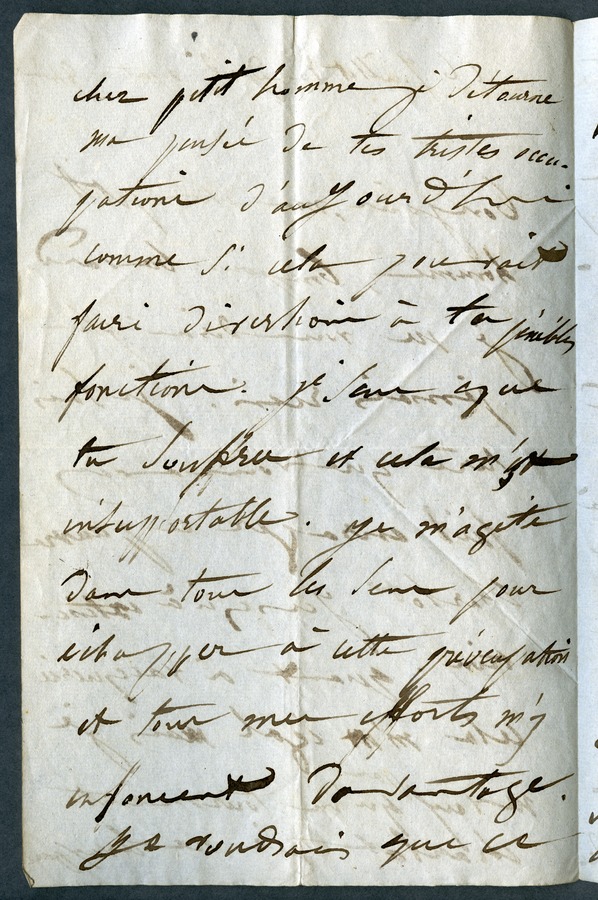 cher petit homme je détourne
ma pensée de tes tristes occu-
pations d'aujourd'hui
comme si cela pouvait
faire diversion à tes pénibles
fonctions. je sens que
tu souffres et cela m'est
insupportable. je m'agite
dans tous les sens pour
échapper à cette préoccupation
et tous mes efforts m'y
enfoncent davantage.
Je voudrais que ce